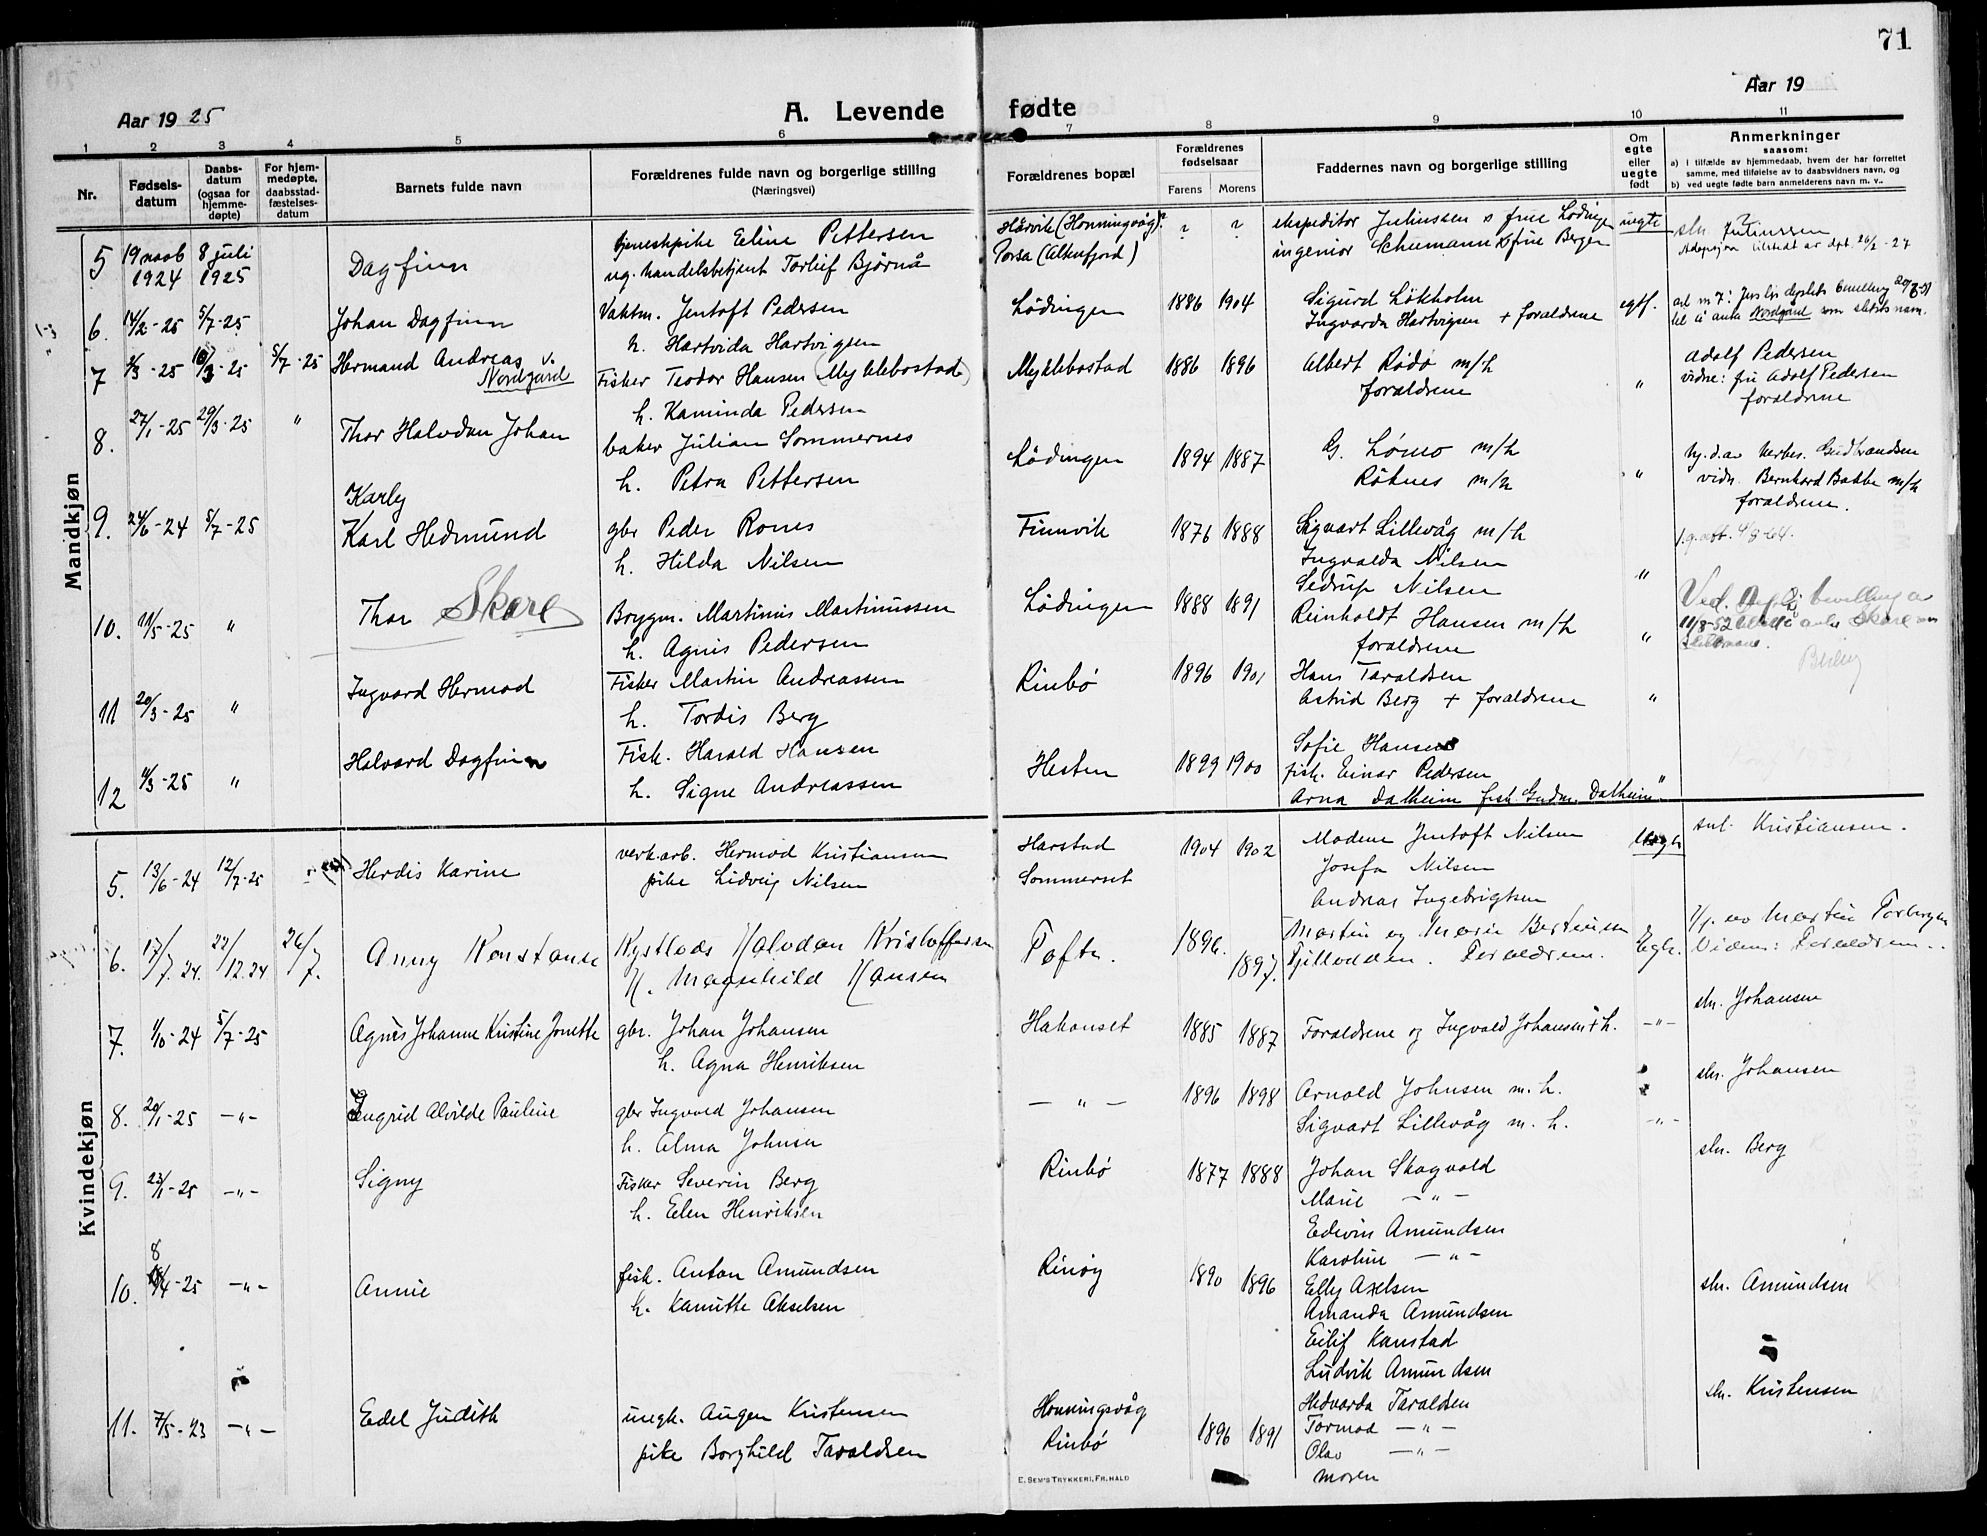 71
Aar 1925
A. Levende
fødte
Aar 19
1 2 3 4 5 6 7 8 9 10 11
Nr.
Fødsels-
datum
Daabs-
datum
(ogsaa for
hjemme-
døpte)
For hjem-
medøpte,
daabsstad-
fæstelses-
datum
Barnets fulde navn
Forældrenes fulde navn og borgerlige stilling
(Næringsvei)
Forældrenes bopæl
Forældrenes
fødselsaar
Farens
Morens
Faddernes navn og borgerlige stilling
Om
egte
eller
uegte
født
Anmerkninger
saasom:
a) i tilfælde av hjemmedaab, hvem der har forrettet
samme, med tilføielse av to daabsvidners navn, og
b) ved uegte fødte barn anmelderens navn m. v..
Mandkjøn
5 19 1924 8 juli 1925 Dagfinn
tjenestepike Eline Pettersen
ug. handelsbetjent Torleif Bjørnå
Hårvik (Honningsvåg)? ? ?
(Altenfjord)
ekspeditor Juliussen & frue Lødingen
ingeniør Schumann & frue Bergen
uegte
sln. Juliussen
6. 14/2-25 5/7-25 Johan Dagfinn
Vaktm. Jentoft Pedersen
h. Hartvida Hartvigsen
Lødingen 1886 1904
Sigurd Løkholm
Ingvarda Hartvigsen + forældrene
7 10/3-25 5/7-25 Hermand Andreas
Nordgård
Fisker Teodor Hansen (Myklebostad)
h. Kaminda Pedersen
Myklebostad 1886 1896
Albert Rødø m/h
forældrene
"
Adolf Pedersen
vidne: fru Adolf Pedersen
forældrene
8. 27/1-25 29/3-25 " Thor Halvdan Johan
baker Julian Sommernes
h. Petra Pettersen
Lødingen 1894 1887
G. Lømo m/h
Röknes m/h
"
Gudbrandsen
vidn. Bernhard Bakke m/h
forældrene.
9. 24/6-24 5/7-25
Karly
Karl Hedmund
gbr Peder Rones
h. Hilda Nilsen
Finnvik 1876 1888
Sigvart Lillevåg m/h
Ingvalda Nilsen
Sedrup Nilsen
"
10. 11/5-25 " Thor Skare
Brygm. Martinus Martinussen
h. Agnes Pedersen
Lødingen 1888 1891
Reinholdt Hansen m/h
forældrene
"
Ved bevilling av
11/8-52 Skare
11 20/3-25 " Ingvard Hermod
Fisker Martin Andreassen
h. Tordis Berg
Rinbø 1896 1901
Hans Taraldsen
Astrid Berg + forældrene
"
12 4/3-25 " Halvard Dagfinn
Fisk. Harald Hansen
h. Signe Andreassen
Hesten 1899 1900
Sofie Hansen
fisk. Einar Pedersen
Arna Dalheim fisk. Gudm. Dalheim "
Kvindekjøn
5. 13/6-24 12/7-25 Herdis Karine
verk.arb. Hermod Kristiansen
pike Lidveig Nilsen
Harstad
Sommerset
1904 1902
Jentoft Nilsen
Josefa Nilsen
Andreas Ingebrigtsen
Uegte
Kristiansen.
6. 17/7.24. 22/12.24 26/7. Anny Konstanse
Kystlods Halvdan Kristoffersen
H. Magnhild Hansen
1896. 1897.
Martin og Marie
Forældrene.
Egte.
av Martin Torbergsen
Vidner: Forældrene.
7. 1/10-24 5/7-25 Agnes Johanne Kristine Jonette
gbr. Johan Johansen
h. Agna Henriksen
Hakonset 1885 1887
Forældrene og Ingvald Johansen + h.
-"-
sln. Johansen
8. 20/1-25 -"- Ingrid Alvilde Pauline
gbr Ingvald Johansen
h. Alma Johnsen
- " - 1896 1898
Arnold Johnsen m. h.
Sigvart Lillevåg m. h.
-"-
sln. Johansen
9. 23/1-25 -"- Signy
Fisker Severin Berg
h. Elen Henriksen
Rinbø 1877 1888
Johan Skogvold
Marie -"-
Edvin Amundsen
Karoline -"-
sln. Berg
10. 8/4-25 -"- Annie
fisk. Anton Amundsen
h. Kamitte Akselsen
Rinøy 1890 1896
Elly Axelsen
Amanda Amundsen
Eilif Kanstad
Ludvik Amundsen
sln. Amundsen
11. 7/5-23 -"- Edel Judith
ungk. Augen Kristensen
pike Borghild Taraldsen
Honningsvåg
Rinbø
1896 1891
Hedvarda Taraldsen
Tormod -"-
Olav -"-
moren
sln. Kristensen
E. SEM'S TRYKKERI, FR.HALD